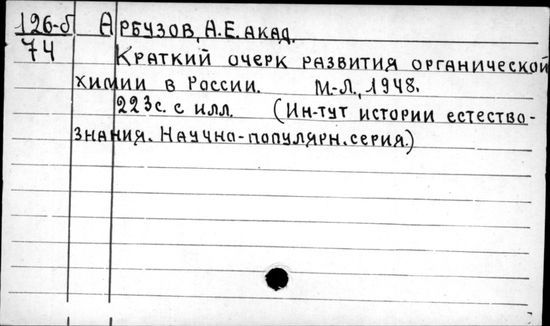 126-б Арбузов, А.Е. акад.
74 Краткий очерк развития органической
химии в России. М-Л., 1948.
223с. с илл. (Ин-тут истории естество-
знания. Научно-популярн. серия.)